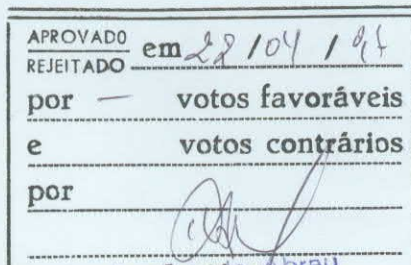 APROVADO
REJEITADO em 28/04/97
por — votos favoráveis
e votos contrários
por